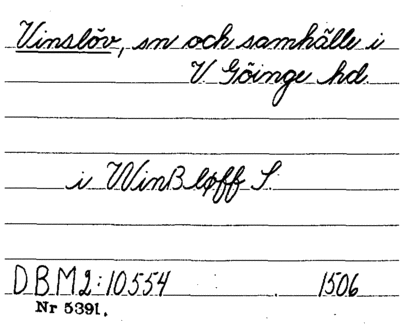 Vinslöv, sn och samhälle i
V Göinge hd.
i WinBløff S.
DBM2:10554 1506
Nr 5391.